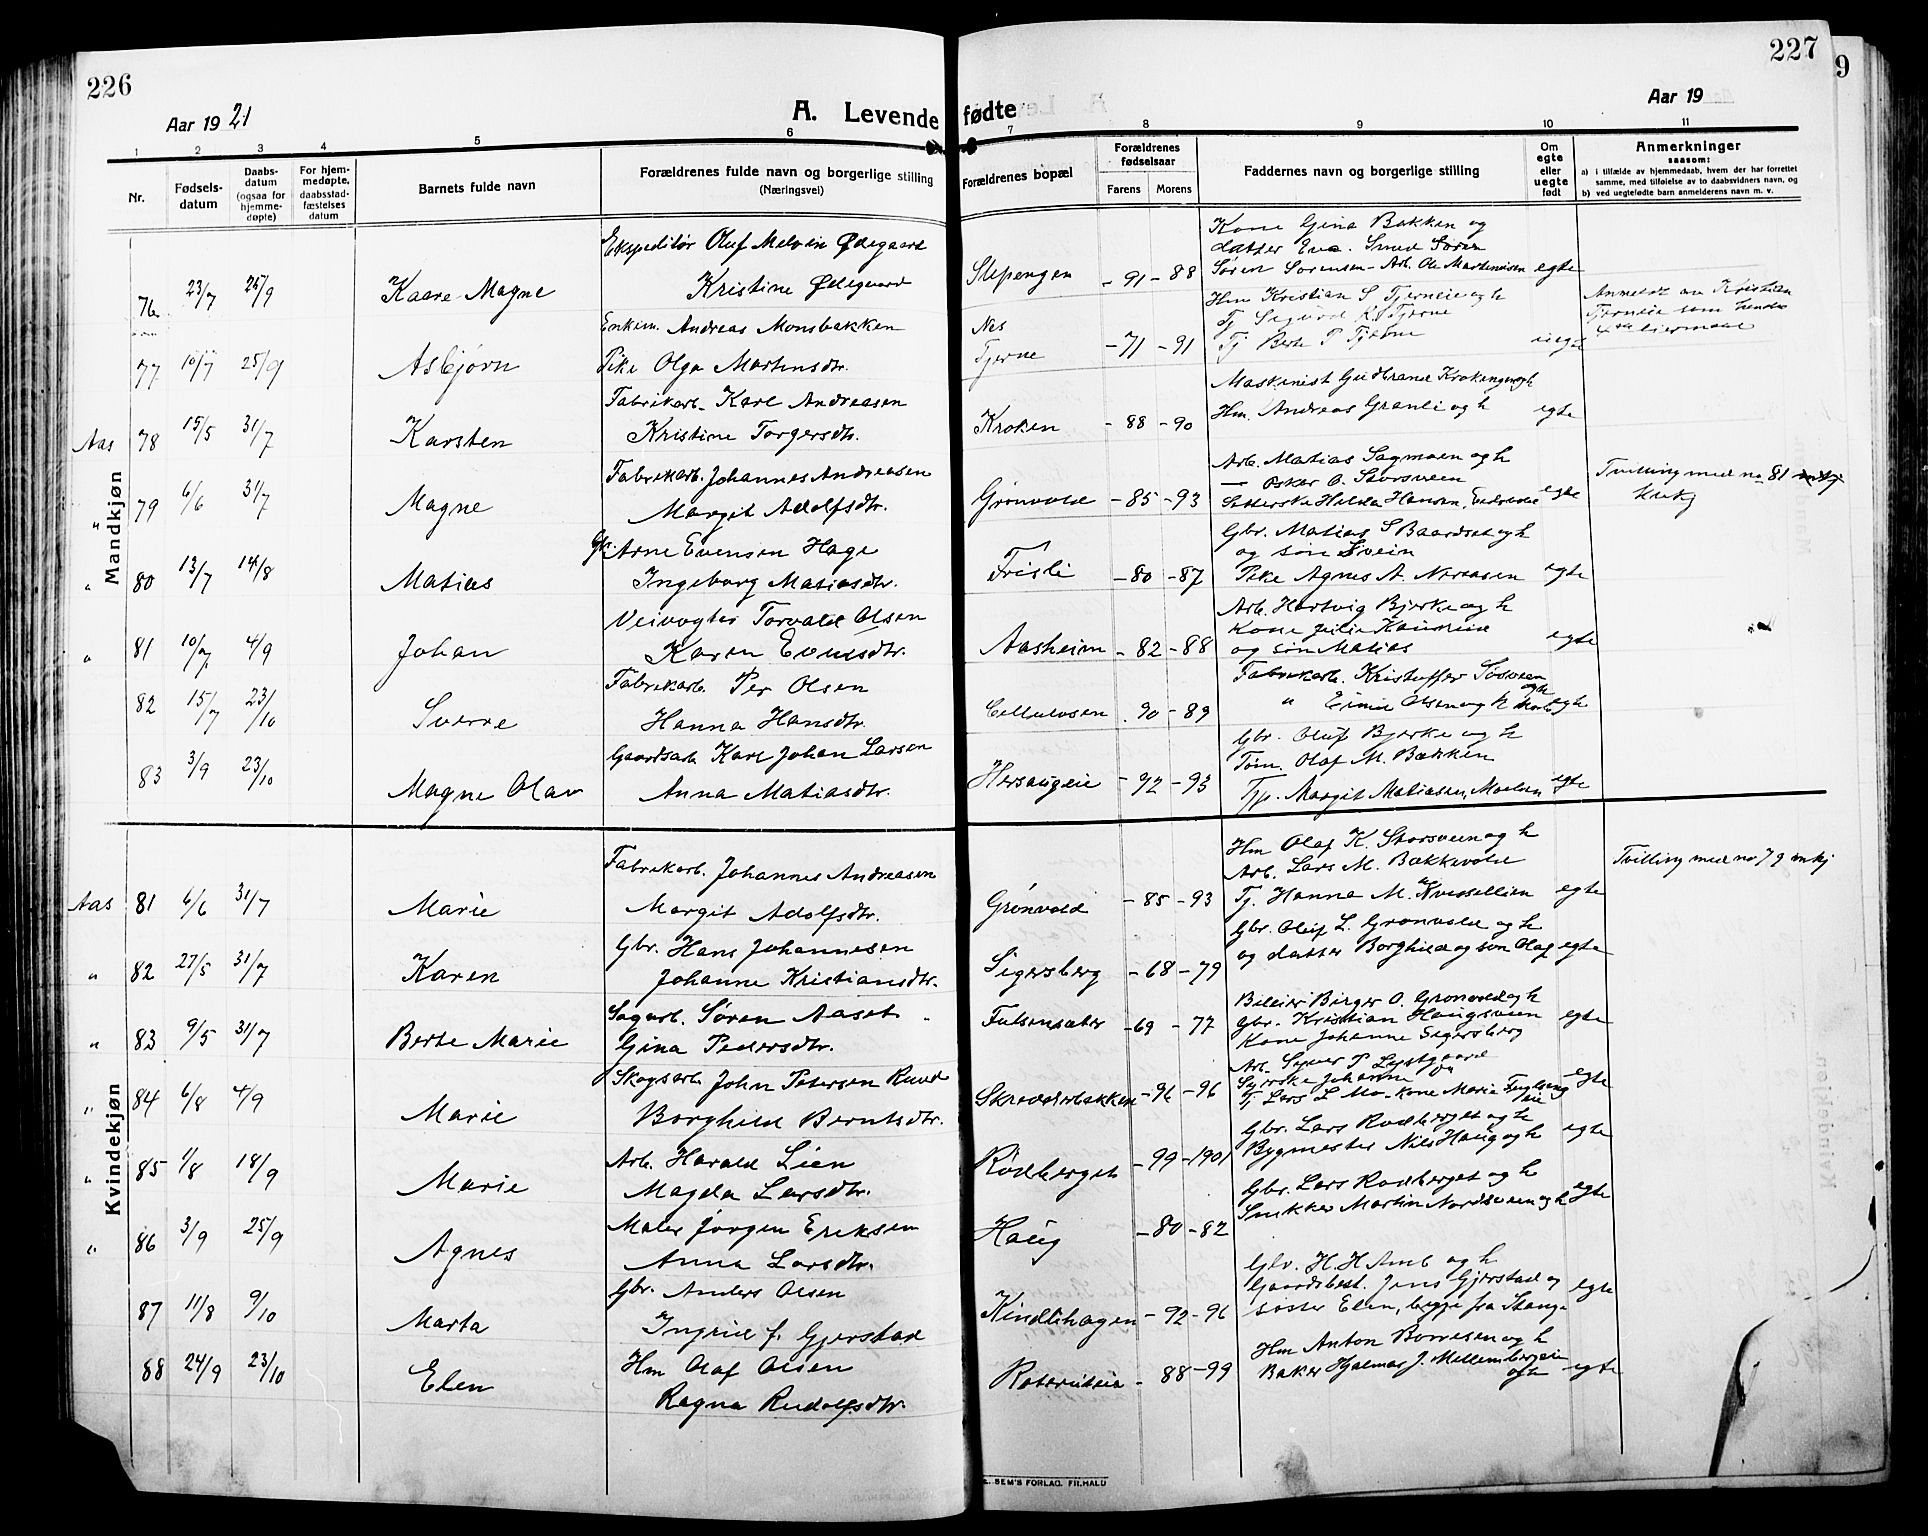 226
Aar 1921
A. Levende fødte
227
9
Aar 19
1 2 3 4 5 6 7 8 9 10 11
Nr.
Fødsels-
datum
Daabs-
datum
(ogsaa for
hjemme-
døpte)
For hjem-
medøpte,
daabsstad-
fæstelses
datum
Barnets fulde navn
Forældrenes fulde navn og borgerlige stilling
(Næringsvei)
Forældrenes bopæl
Forældrenes
fødselsaar
Farens Morens
Faddernes navn og borgerlige stilling
Om
egte
eller
uegte
født
Anmerkninger
saasom:
a) i tilfælde av hjemmedaab, hvem der har forrettet
samme, med tilføielse av to daabsvidners navn, og
b) ved uegtefødte barn anmelderens navn m. v.
Mandkjøn
Ekspeditør Oluf Melvin Ødegaard
Kone Gina Bakken og
datter Eva. Smed Søren
76 23/7 25/9 Kaare Magne Kristine Ødegaard Stepengen -91 -88 Søren Sorensen - Arb. Ole Martinisen egte
Enkem. Andreas Monsbakken Nes
Hm Kristian S Tjerneie og h
Anmeldt av Kristian
Tjerneie som hendes
77 10/7 25/9 Asbjørn Pike Olga Martinsdtr. Tjerne -71 -91 Tj Berte P Tjerne uegte
Fabrikarb. Karl Andreasen
Maskinist Gudbrand Krokengen og h
Aas 78 15/5 31/7 Karsten Kristine Torgersdtr. Kroken -88 -90 Hm. Andreas Granlie og h egte
Fabrikarb. Johannes Andreasen
Arb. Matias Sagmoen og h
— Oskar O. Storsveen
" 79 6/6 31/7 Magne Margit Adolfsdtr. Grønvold -85 -93 Hilda Hansen, egte
Tvilling med no 81
kvkj
Gbr. Arne Evensen Hage
Gbr. Matias S Baardset og h
og søn Svein
" 80 13/7 14/8 Matias Ingeborg Matiasdtr. Frisli -80 -87 Pike Agnes A. egte
Veivogter Torvald Olsen
Arb. Hartvig Bjerke og h
Kone Julie
" 81 10/7 4/9 Johan Karen Evensdtr. Aasheim -82 -88 og søn Matias egte
Fabrikarb. Per Olsen
Fabrikarb. Kristoffer Søsveen
og h
82 15/7 23/10 Sverre Hanna Hansdtr. Cellulosen -90 -89 " Einar Olsen og h egte
Gaardsarb. Karl Johan Larsen
Gbr. Oluf Bjerke og h
Tøm. Olaf M. Bakken
83 3/9 23/10 Magne Olav Anna Matiasdtr. Hersaugeie -92 -93 Tj. Margit Matiassen, Moelven egte
Kvindekjøn
Fabrikarb. Johannes Andreasen
Hm Olaf K. Storsveen og h
Arb. Lars M. Bakkevold
Tvilling med no 79 mkj
Aas 81 6/6 31/7 Marie Margit Adolfsdtr. Grønvold -85 -93 Tj. Hanna M. Kvisellien egte
Gbr. Hans Johannesen
Gbr. Oluf L. Grønvold og h
" 82 27/5 31/7 Karen Johanne Kristiansdtr. Sigersberg -68 -79 og datter Borghild og søn Olaf egte
Sagarb. Søren Aaset
Bileier Birger O. Grønvold og h
" 83 9/5 31/7 Berte Marie Gina Pedersdtr. Futsensæter -69 -77 Gbr. Kristian Haugsveen egte
Kone Johanne Sigersberg
Skogsarb. John Petersen Ruud
Arb. Syver P Lystgaard
Syerske Johanne
" 84 6/8 4/9 Marie Borghild Berntsdtr. Skrædderbakken -96 -96 Tj Lars L Mo - kone Marie egte
Gbr. Lars Rødberget og h
" 85 1/8 18/9 Marie Arb. Harald Lien Rødberget -99 -1901 Bygmester Nils Haug og h egte
Magda Larsdtr.
Maler Jørgen Eriksen
Gbr. Lars Rødberget og h
" 86 3/9 25/9 Agnes Anna Larsdtr. Haug -80 -82 Snekker Martin Nordsveen og h egte
Gbr. Anders Olsen
Gbr. H. H Amb og h
Gaardsbest. Jens Gjerstad og
87 11/8 9/10 Marta Ingrid f. Gjerstad Kindlihagen -92 -96 søster Elen, begge fra Stange egte
Hm Olaf Olsen
Hm Anton Borresen og h
88 24/9 23/10 Elen Ragna Rudolfsdtr. -88 -99 Baker Hjalmar J. Mellembergeie og h egte
SEM'S FORLAG. FR.HALD